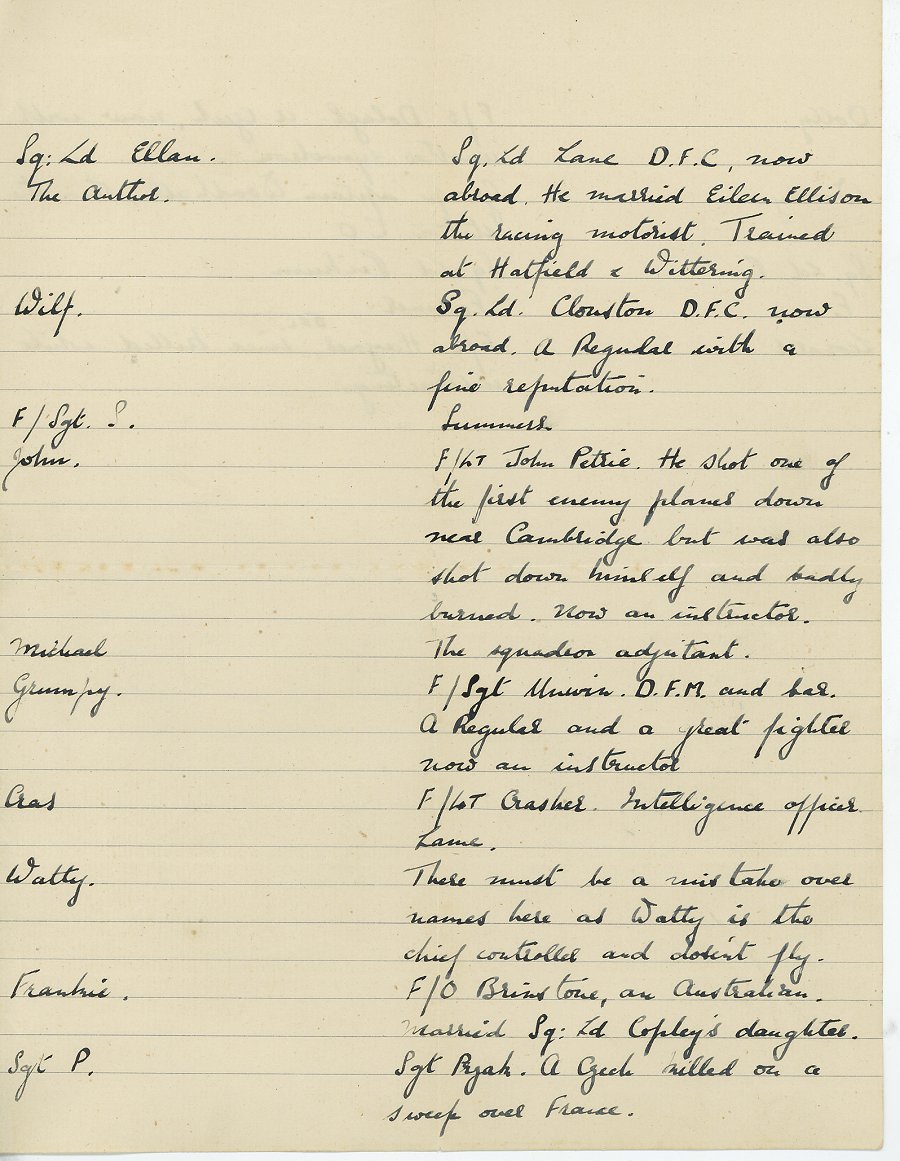 Sq: Ld Ellan. Sq. Ld Lane D.F.C, now
The Author. abroad. He married Eileen Ellison
the racing motorist. Trained
at Hatfield & Wittering.
Wilf. Sq. Ld. Clouston D.F.C. now
abroad. A Regular with a
fine reputation.
F/Sgt. S. Summers
John. F/LT John Petrie. He shot one of
the first enemy planes down
near Cambridge but was also
shot down himself and badly
burned. Now an instructor.
Michael The squadron adjutant.
Grumpy. F/Sgt Unwin. D.F.M. and bar.
A Regular and a great fighter
now an instructor
Cras F/LT Crasher. Intelligence officer.
Lame.
Watty. There must be a mistake over
names here as Watty is the
chief controller and dosint fly.
Frankie. F/O Brinstone, an Australian.
Married Sq: Ld Copley's daughter.
Sgt P. Sgt . A Czech killed on a
sweep over France.